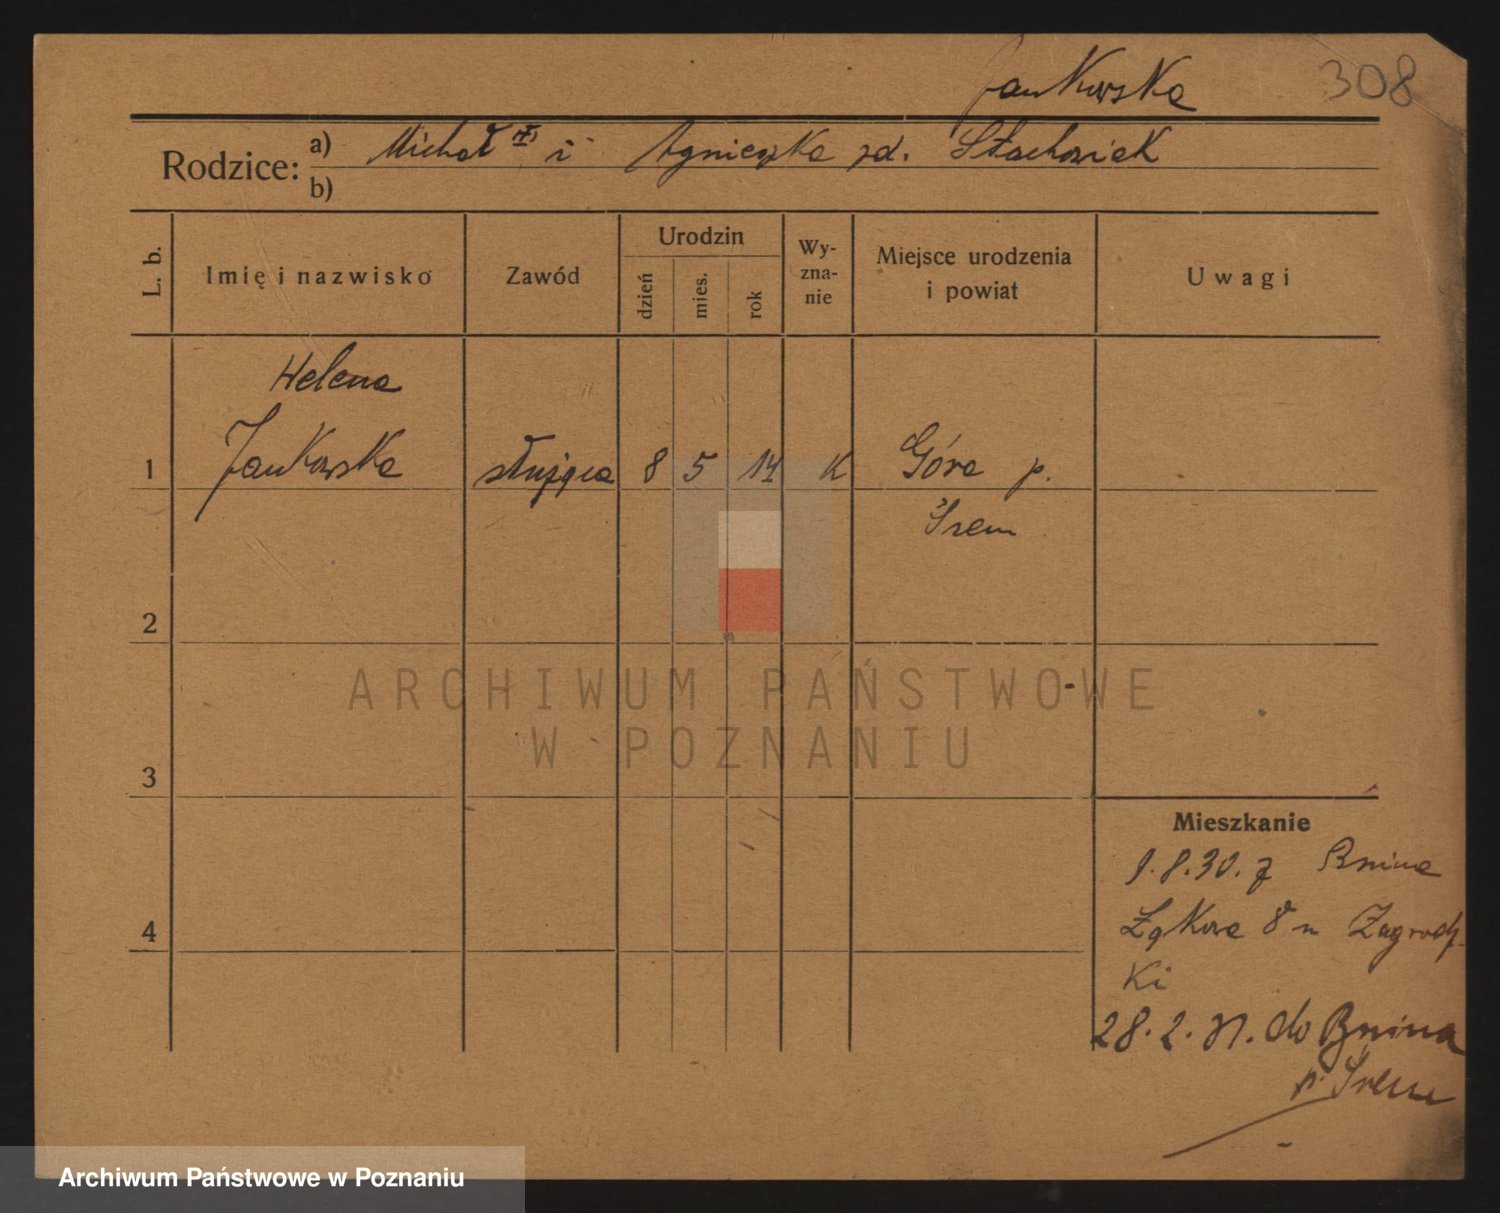 Jankowska
308
Rodzice: a) Michał i Agnieszka zd. Stachowiak
b)
L. b.
Imię i nazwisko
Zawód
Urodzin
dzień
mies.
rok
Wy-
zna-
nie
Miejsce urodzenia
i powiat
Uwagi
Helena
1 Jankowska służąca 8 5 14 K Góra p.
Śrem
2
ARCHIWUM PAŃSTWOWE
W POZNANIU
3
Mieszkanie
9.8.30. z Bnina
Łąkowa 8 u Zagrodz
4
ki
28.2.31. do Bnina
p. Śrem
Archiwum Państwowe w Poznaniu